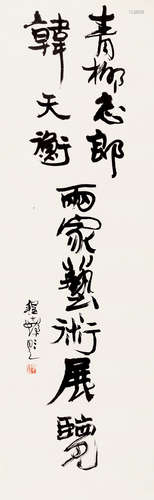 青柳志郎
韓天衡
兩家藝術展覽
程十髮題